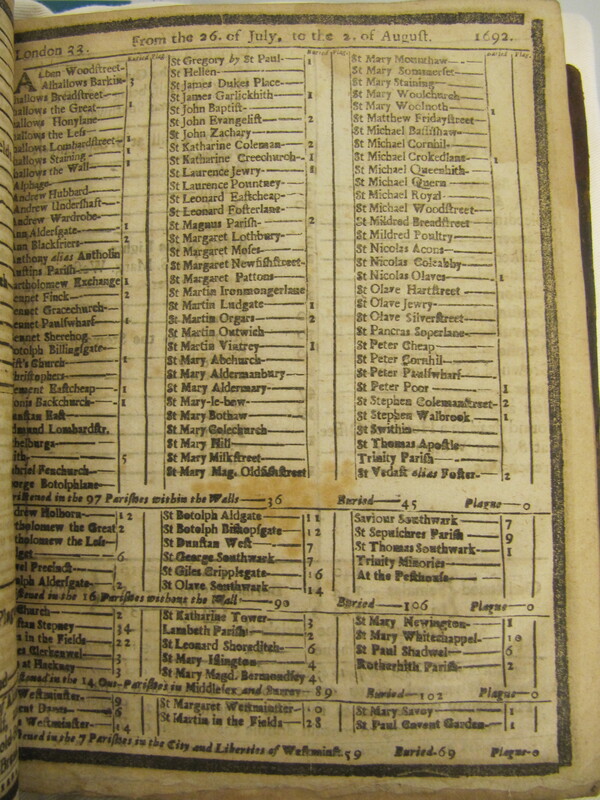 London 33. From the 26. of July, to the 2. of Auguſt. 1692.
Buried Plag.
Alban Woodſtreet
Alhallows Barkin- 3
hallows Breadſtreet
hallows the Great- 1
hallows Honylane
hallows the Leſs
hallows Lombardſtreet- 1
hallows Staining- 1
hallows the Wall- 1
Alphage
Andrew Hubbard
Andrew Underſhaft
Andrew Wardrobe
Ann Alderſgate- 1
Ann Blackfriers- 2
nthony alias Antholin
uſtins Pariſh
artholomew Exchange 1
ennet Finck- 2
ennet Gracechurch
ennet Paulſwharf- 1
ennet Sherehog
otolph Billingſgate
iſt's Church- 1
hriſtophers
ement Eaſtcheap- 1
onis Backchurch- 1
unſtan Eaſt
dmund Lombardſtr.
thelburga
ith- 5
briel Fenchurch
orge Botolphlane
Buried Plag.
St Gregory by St Paul- 1
St Hellen
St James Dukes Place
St James Garlickhith- 1
St John Baptiſt
St John Evangeliſt- 2
St John Zachary
St Katharine Coleman- 2
St Katharine Creechurch- 1
St Laurence Jewry- 1
St Laurence Pountney
St Leonard Eaſtcheap
St Leonard Foſterlane
St Magnus Pariſh- 2
St Margaret Lothbury
St Margaret Moſes
St Margaret Newfiſhſtreet
St Margaret Pattons
St Martin Ironmongerlane
St Martin Ludgate- 1
St Martin Orgars- 2
St Martin Outwich
St Martin Vintrey- 1
St Mary Abchurch
St Mary Aldermanbury
St Mary Aldermary
St Mary-le-bow
St Mary Bothaw
St Mary Colechurch
St Mary Hill
St Mary Milkſtreet
St Mary Mag. Oldfiſhſtreet
Buried Plag.
St Mary Mounthaw
St Mary Sommerſet
St Mary Staining
St Mary Woolchurch
St Mary Woolnoth- 1
St Matthew Fridayſtreet
St Michael Baſſiſhaw
St Michael Cornhil
St Michael Crokedlane- 1
St Michael Queenhith
St Michael Quern
St Michael Royal
St Michael Woodſtreet
St Mildred Breadſtreet
St Mildred Poultry
St Nicolas Acons
St Nicolas Coleabby
St Nicolas Olaves- 1
St Olave Hartſtreet
St Olave Jewry
St Olave Silverſtreet
St Pancras Soperlane
St Peter Cheap
St Peter Cornhil
St Peter Paulſwharf
St Peter Poor- 1
St Stephen Colemanſtreet- 2
St Stephen Walbrook- 1
St Swithin
St Thomas Apoſtle
Trinity Pariſh
St Vedaſt alias Foſter- 2
riſtened in the 97 Pariſhes within the Walls- 36 Buried- 45 Plague- 0
drew Holborn- 12
tholomew the Great 2
tholomew the Leſs
dget- 6
el Precinct
olph Alderſgate- 2
St Botolph Aldgate- 11
St Botolph Biſhopſgate- 12
St Dunſtan Weſt- 7
St George Southwark- 7
St Giles Cripplegate- 16
St Olave Southwark- 14
Saviour Southwark- 7
St Sepulchres Pariſh- 9
St Thomas Southwark- 1
Trinity Minories
At the Peſthouſe
ſtened in the 16 Pariſhes without the Wall- 90 Buried- 106 Plague- 0
hurch- 2
ſtan Stepney- 34
in the Fields- 22
es Clerkenwel- 3
at Hackney- 3
St Katharine Tower- 3
Lambeth Pariſh- 2
St Leonard Shoreditch- 6
St Mary Iſlington- 4
St Mary Magd. Bermondſey 4
St Mary Newington- 1
St Mary Whitechappel- 10
St Paul Shadwel- 6
Rotherhith Pariſh- 2
ſtened in the 14 Out-Pariſhes in Middleſex and Surrey- 89 Buried- 102 Plague- 0
Weſtminſter- 9
ent Danes- 6
s Weſtminſter- 14
St Margaret Weſtminſter- 10
St Martin in the Fields- 28
St Mary Savoy- 1
St Paul Covent Garden- 1
ſtened in the 7 Pariſhes in the City and Liberties of Weſtminſt. 59 Buried- 69 Plague- 0